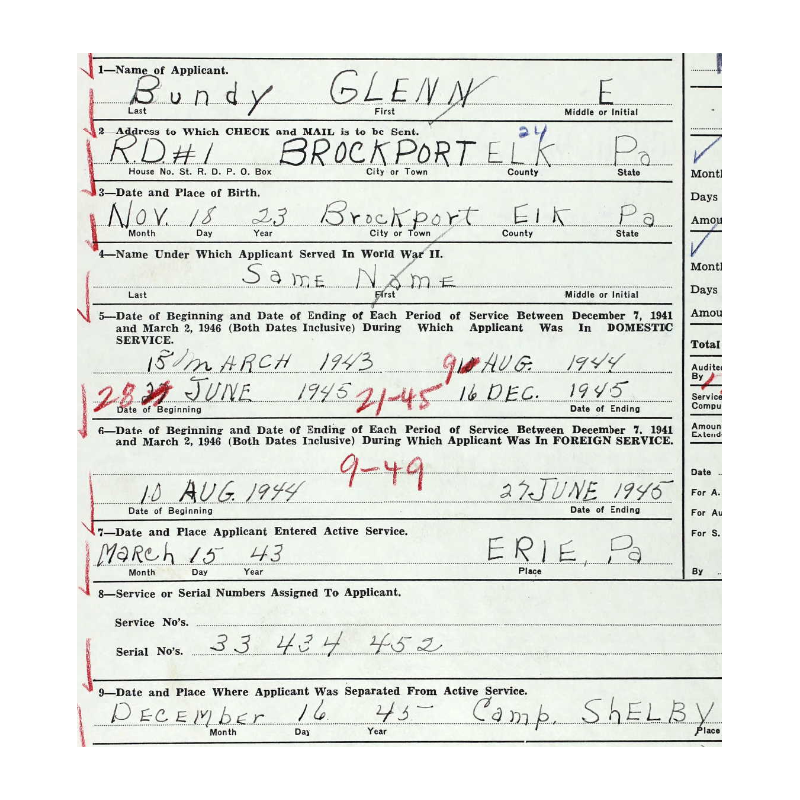 1—Name of Applicant.
Bundy GLENN E
Last First Middle or Initial
2—Address to Which CHECK and MAIL is to be Sent.
24
R.D#1 BROCKPORT ELK Pa
House No. St. R. D. P. O. Box City or Town County State
3—Date and Place of Birth.
Nov. 18 23 Brockport Elk Pa
Month Day Year City or Town County State
4—Name Under Which Applicant Served In World War II.
Same Name
Last First Middle or Initial
5—Date of Beginning and Date of Ending of Each Period of Service Between December 7, 1941
and March 2, 1946 (Both Dates Inclusive) During Which Applicant Was In DOMESTIC
SERVICE.
15 MARCH 1943 9 AUG. 1944
28 JUNE 1945 21-45 16 DEC. 1945
Date of Beginning Date of Ending
6—Date of Beginning and Date of Ending of Each Period of Service Between December 7, 1941
and March 2, 1946 (Both Dates Inclusive) During Which Applicant Was In FOREIGN SERVICE.
9-49
10 AUG. 1944 27 JUNE 1945
Date of Beginning Date of Ending
7—Date and Place Applicant Entered Active Service.
March 15 43 ERIE, Pa
Month Day Year Place
8—Service or Serial Numbers Assigned To Applicant.
Service No's.
Serial No's. 33 434 452
9—Date and Place Where Applicant Was Separated From Active Service.
DECEMber 16 45 Camp. ShELBY
Month Day Year Place
Days
Days
Total
By
Service
Date
For A.
For S.
By